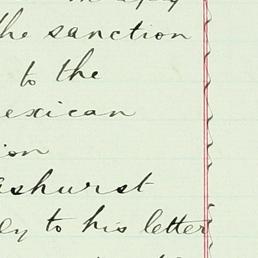 the sanction
to the
exican
ion
ashurst
ey to his letter